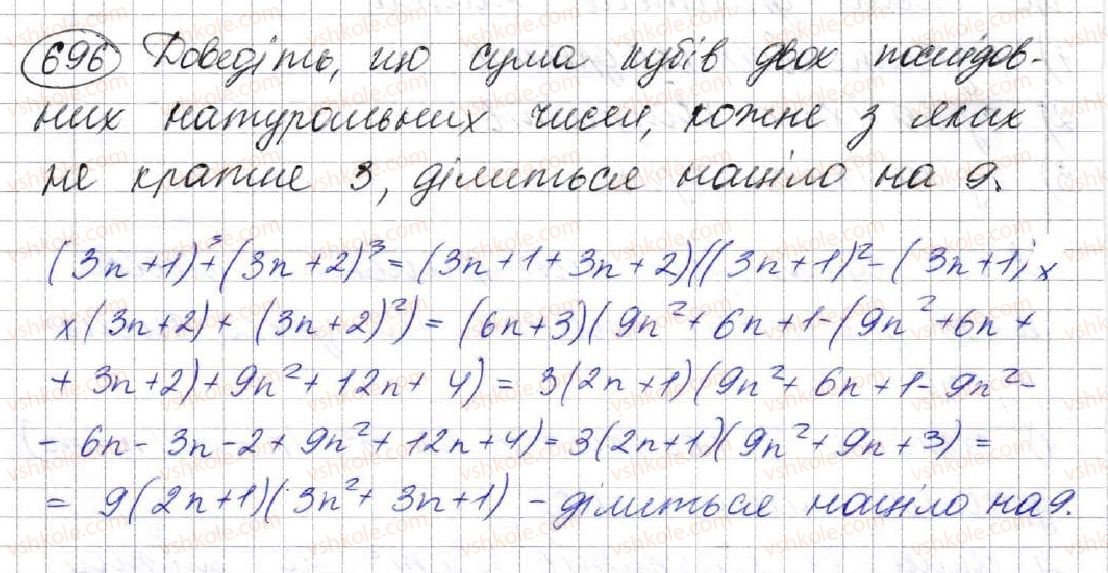 696 Доведіть, що сума кубів двох послідов-
них натуральних чисел, кожне з яких
не кратне 3, ділиться націло на 9.
(3n+1)³+(3n+2)³=(3n+1+3n+2)((3n+1)²-(3n+1)×
×(3n+2)+(3n+2)²)=(6n+3)(9n²+6n+1-(9n²+6n+
+3n+2)+9n²+12n+4)=3(2n+1)(9n²+6n+1-9n²-
-6n-3n-2+9n²+12n+4)=3(2n+1)(9n²+9n+3)=
=9(2n+1)(3n²+3n+1) - ділиться націло на 9.